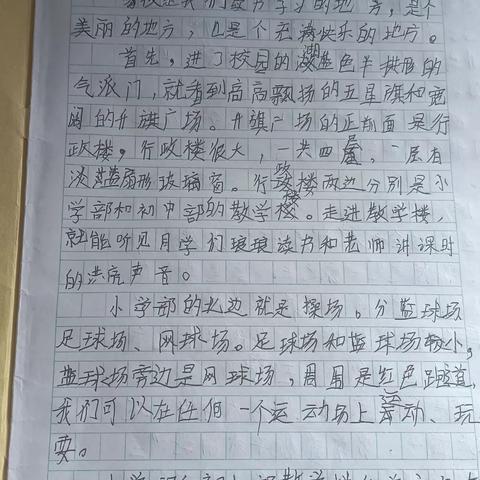 学校是我们读书学习的地方，是个
美丽的地方，也是个充满快乐的地方。
首先，进了校园的淡蓝色半拱形的
气派门，就看到高高飘扬的五星旗和宽
阔的升旗广场。升旗广场的正前面是行
政楼。行政楼很大，一共四层，一层有
淡蓝扇形玻璃窗。行政楼两边分别是小
学部和初中部的教学楼。走进教学楼，
就能听见同学们琅琅读书和老师讲课时
的洪亮声音。
小学部的北边就是操场。分蓝球场
足球场、网球场。足球场和蓝球场较小，
蓝球场旁边是网球场，周围是红色跑道，
我们可以在任何一个运动场上运动、玩
耍。